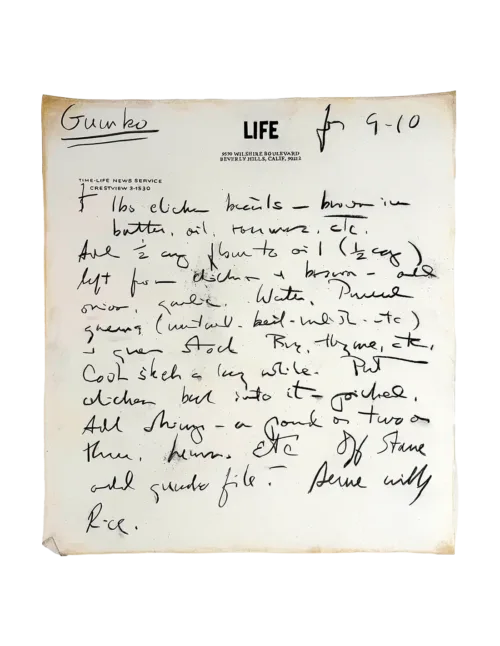 Gumbo
LIFE
for 9-10
9570 WILSHIRE BOULEVARD
BEVERLY HILLS, CALIF. 90212
TIME-LIFE NEWS SERVICE
CRESTVIEW 3-1530
lbs chicken breasts – brown in
butter, oil, etc.
Add ½ cup flour to oil (½ cup)
left from chicken + brown – add
onion, garlic. Water,
greens (mustard - - etc)
+ green stock Bay, thyme, etc.
Cook a long while. Put
chicken back into it –
Add shrimp – a pound or two or
three, lemon. Etc Off stove
add gumbo file. – Serve with
Rice.